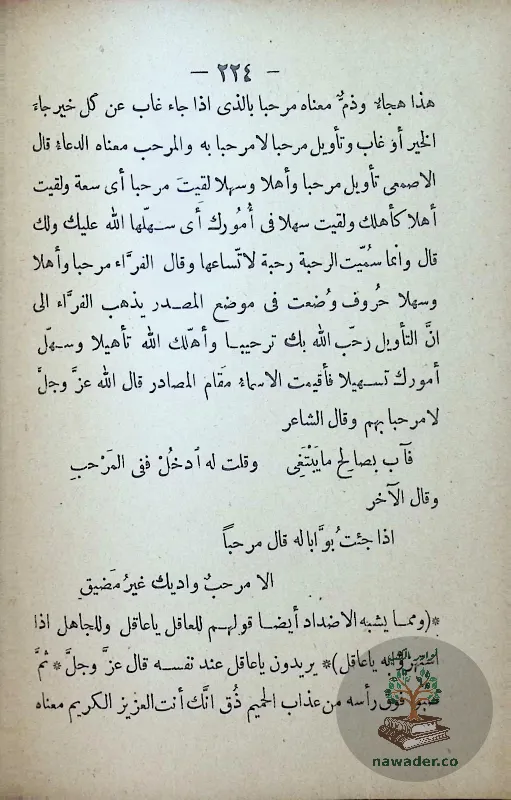 - ٢٢٤ -
هذا هجاءٌ وذمٌّ معناه مرحبا بالذى اذا جاء غاب عن كل خير جاءَ
الخير أو غاب وتأويل مرحبا لا مرحبا به والمرحب معناه الدعاءُ قال
الاصمعى تأويل مرحبا وأهلا وسهلا لقيتَ مرحبا أى سعة ولقيت
أهلا كأهلك ولقيت سهلا فى أُمُورك أَى سـهّلها الله عليك ولك
قال وانما سُمّيت الرحبة رحبة لاتّساعها وقال الفرَّاء مرحبا وأهلا
وسهلا حُروف وُضعت فى موضع المصـدر يذهب الفرَّاء الى
انَّ التأويل رحّب الله بك ترحيبـا وأهّلك الله تأهيلا وسـهّل
أمورك تسـهيلا فأقيمت الاسماءُ مقَام المصادر قال الله عزَّ وجلَّ
لا مرحبا بهم وقال الشاعر
فآب بصالح ما يَبْتَغِى وقلت له اُدخُلْ ففى المَرْحبِ
وقال الآخر
اذا جئت بوَّابا له قال مرحباً
الا مرحبٌ واديك غيرُ مضيق
*(ومما يشبه الاضداد أيضـا قولهـم للعاقل ياعاقل وللجاهل اذا
ياعاقل)* يريدون ياعاقل عند نفسـه قال عزَّ وجلَّ * ثُمَّ
رأسه من عذاب الحميم ذُق انَّك أنت العزيز الكريم معناه
nawader.co